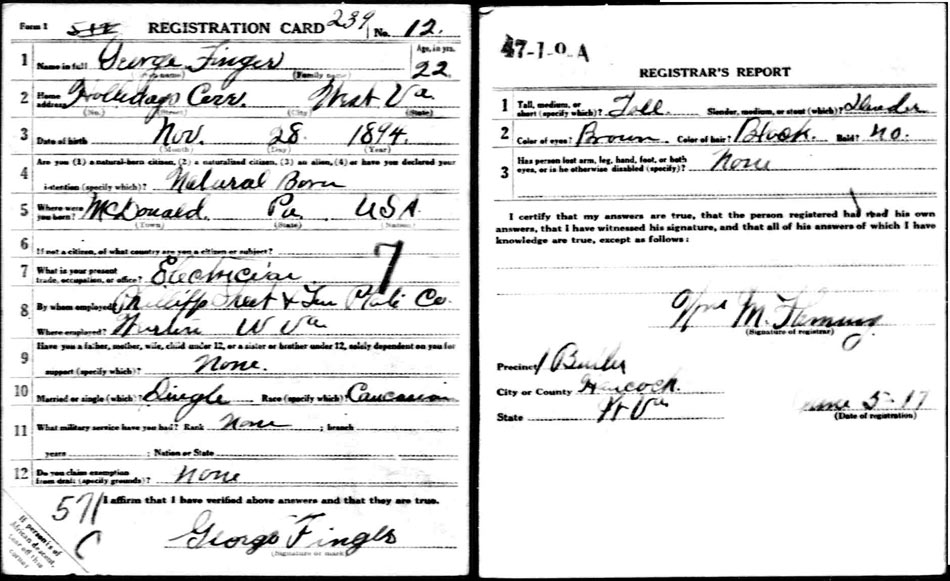 Form 1 REGISTRATION CARD 239 No. 12.
1 Name in full George Finger Age, in yrs. 22
(Given name) (Family name)
2 Home address Hollidays Cove. West Va
(No.) (Street) (City) (State)
3 Date of birth Nov. 28 1894.
(Month) (Day) (Year)
Are you (1) a natural-born citizen, (2) a naturalized citizen, (3) an alien, (4) or have you declared your
4 intention (specify which)? Natural Born
5 Where were you born? McDonald. Pa USA.
(Town) (State) (Nation)
6 If not a citizen, of what country are you a citizen or subject?
7 What is your present trade, occupation, or office? Electrician 7
8 By whom employed? Phillips Sheet & Tin Plate Co.
Where employed? W Va
Have you a father, mother, wife, child under 12, or a sister or brother under 12, solely dependent on you for
9 support (specify which)? None.
10 Married or single (which)? Single Race (specify which)? Caucasian
11 What military service have you had? Rank None ; branch ;
years ; Nation or State
12 Do you claim exemption from draft (specify grounds)? None
I affirm that I have verified above answers and that they are true.
571
C
If person is of African descent, tear off this corner
George Finger
(Signature or mark)
47-1-9. A
REGISTRAR'S REPORT
1 Tall, medium, or short (specify which)? Tall. Slender, medium, or stout (which)? Slender
2 Color of eyes? Brown Color of hair? Black. Bald? no.
3 Has person lost arm, leg, hand, foot, or both eyes, or is he otherwise disabled (specify)? None
I certify that my answers are true, that the person registered has read his own
answers, that I have witnessed his signature, and that all of his answers of which I have
knowledge are true, except as follows:
Wm M. Fleming
(Signature of registrar)
Precinct 1 Butler
City or County Hancock.
State W Va June 5-17
(Date of registration)